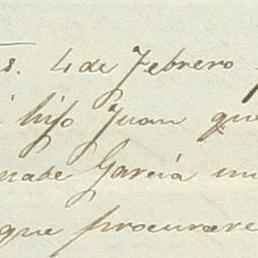 s. 4 de Febrero
hijo Juan que
nabe García un
que procurare